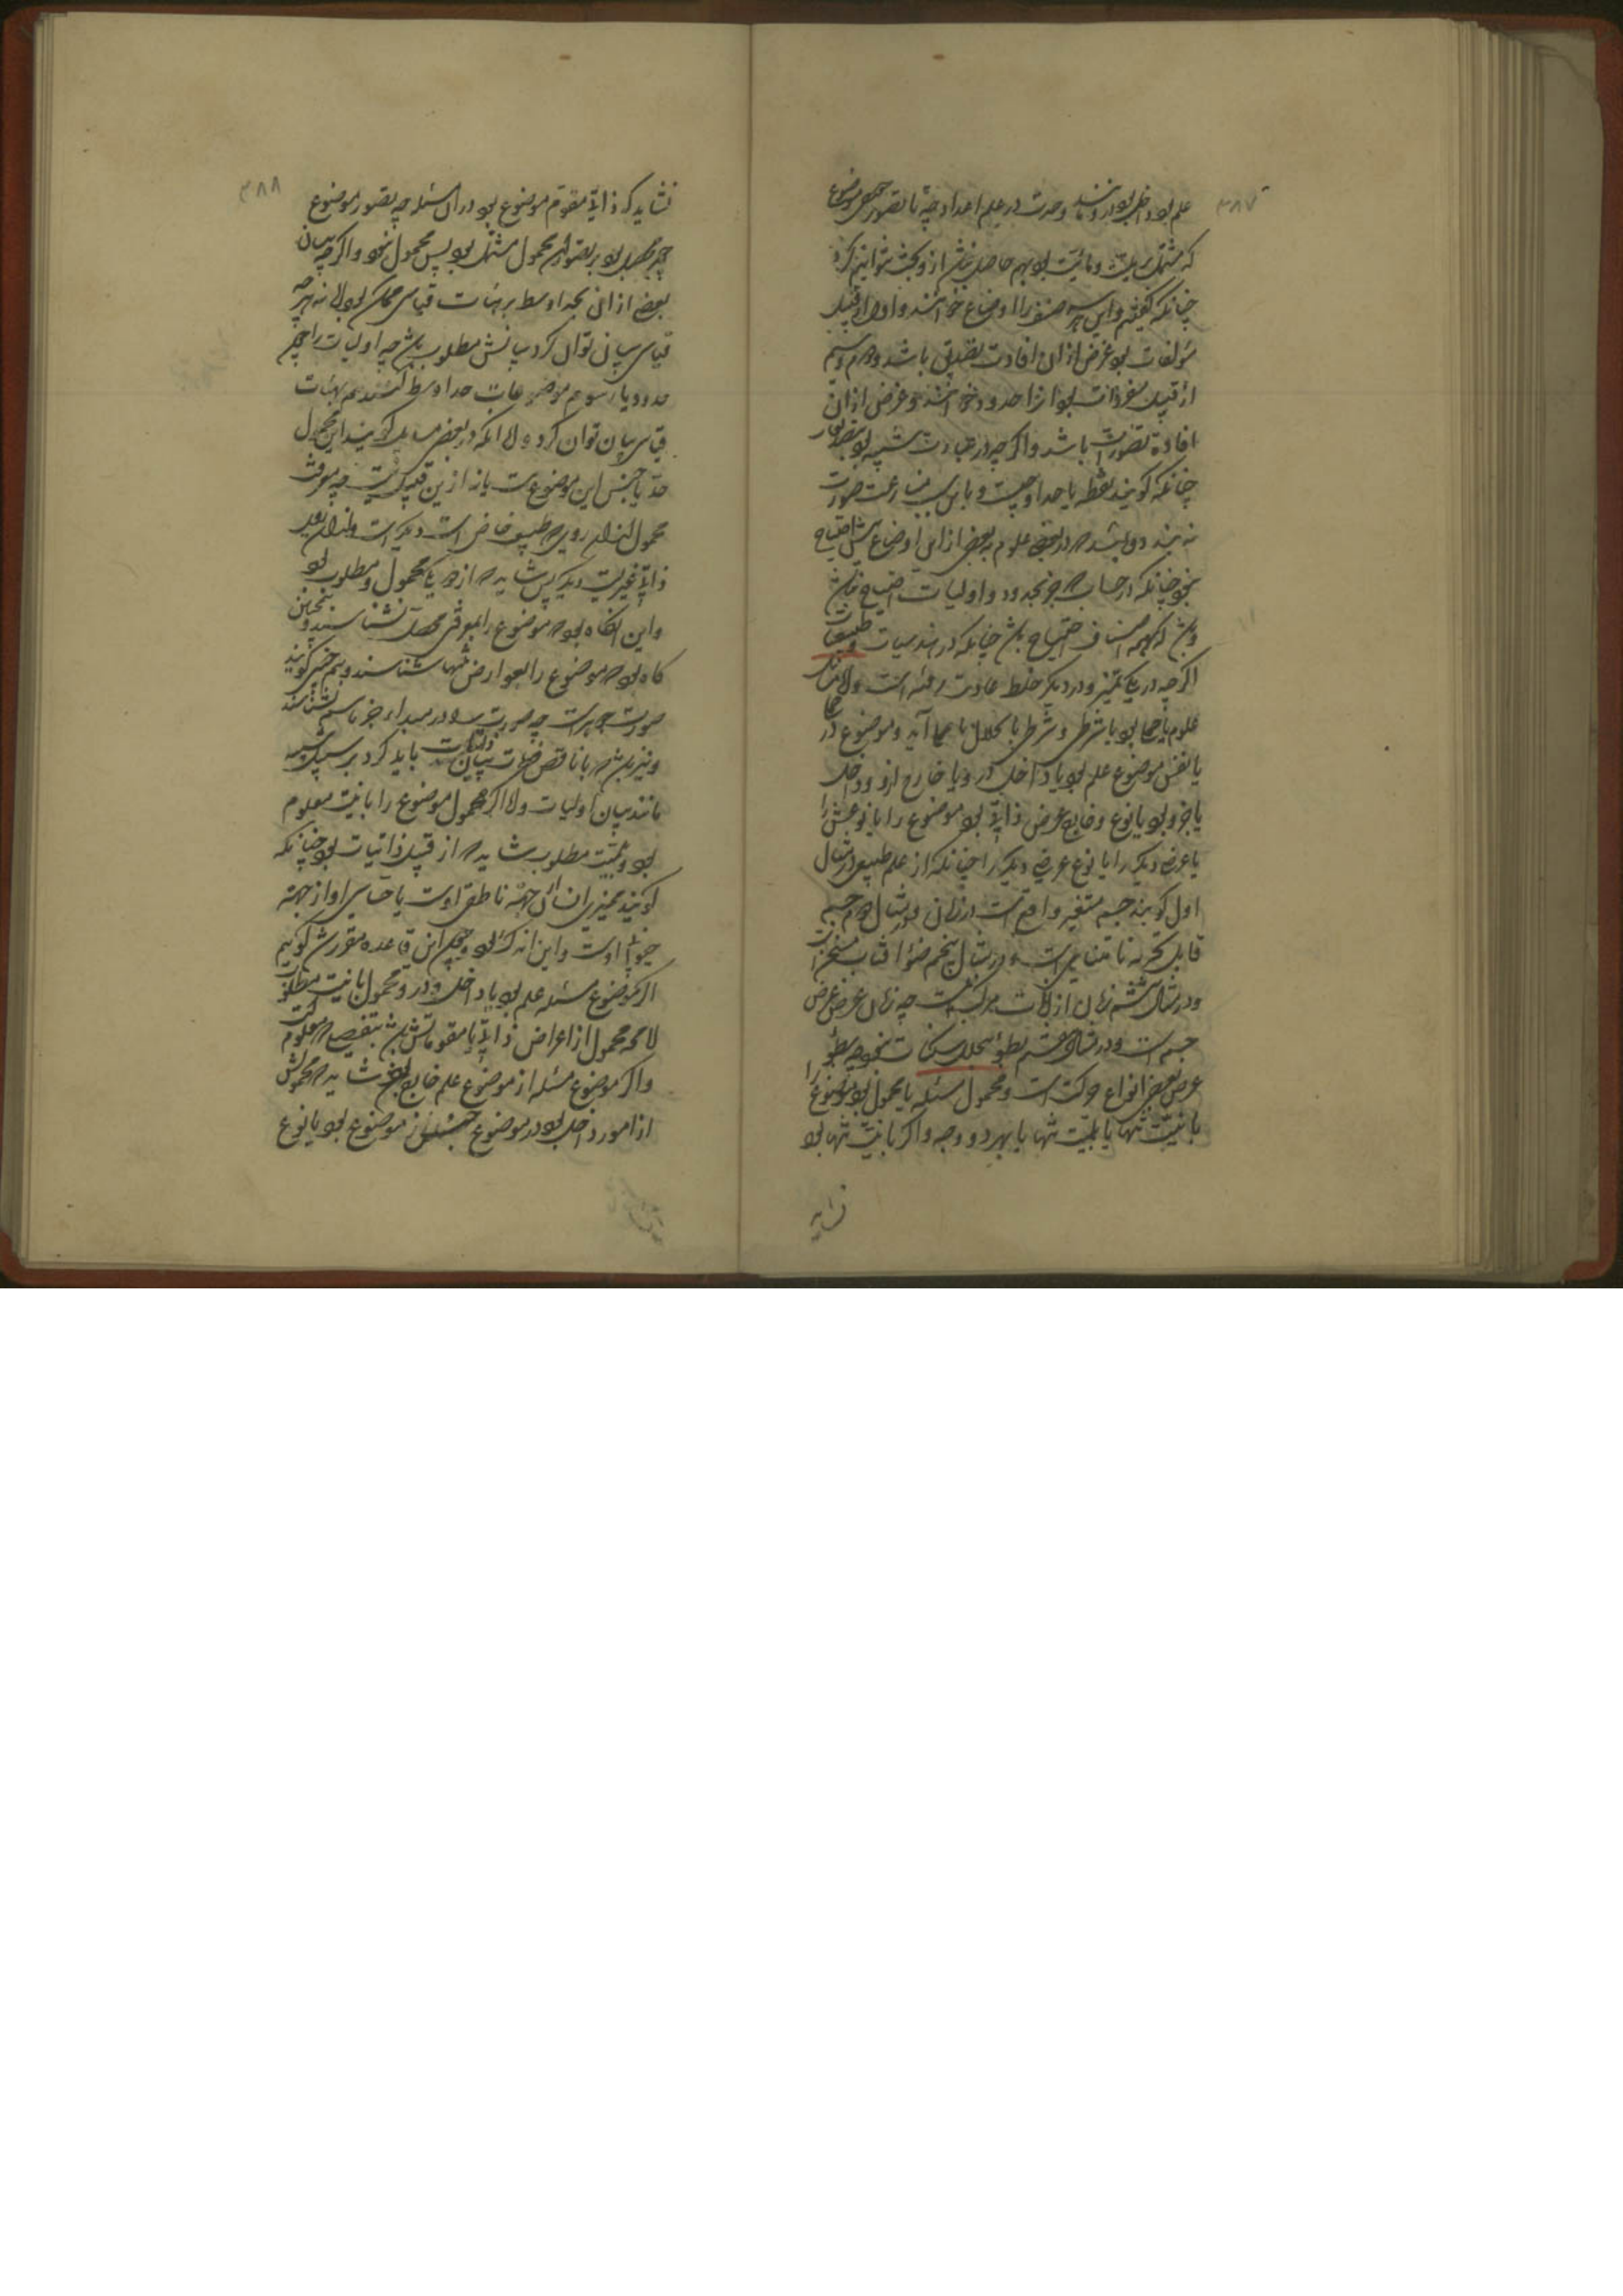 ۳۸۷
علم بود داخل بود در و مانند وحدت در علم اعداد چه تا تصور جمیع موضوع
که مشتمل بر هلیت و مائیت بود بهم حاصل نباشد از و بحث نتوانیم کرد
چنانکه گفتیم و این هر سه صنف را اوضاع خوانند و اول از قبیل
مؤلفات بود غرض از ان افادت تصدیق باشد و دوم و سیم
از قبیل مفردات بود و انرا حدود خوانند و غرض ازان
افادۀ تصورات باشد و اگر چه در عبارت شبیه بود
چنانکه گویند نقطه یا حد او چیست و باین سبب منازعت را صورت
نه بندد و باشد که در بعضی علوم به بعضی ازاین اوضاع احتیاج
نبود چنانکه در حساب که جز بحدود و اولیات احتیاج نباشد
و باشد که بهمه اصناف احتیاج باشد چنانکه در هندسیات و طبیعیات
اگر چه در یکی تمیز و در دیگر خلط عادت رفته است و اما مسائل
علوم یا حملی بود یا شرطی و شرطی بانحلال با حملی آید و موضوع در
یا نفس موضوع علم بود یا داخل در و یا خارج ازو و داخل
یا جزو بود یا نوع و خارج عرض ذاتی بود موضوع را یا نوعش را
یا عرضی دیگر را یا نوع عرضی دیگر را چنانکه از علم طبیعی در مثال
اول گویند جسم متغیر واقع است در زمان و در مثال دوم جسم
قابل تجزیه نامتناهی است و در مثال پنجم ضوء افتاب مسخن است
و در مثال ششم زمان از آنات مرکب نیست چه زمان عرض عرض
جسم است و در مثال هفتم بطوء بتخلل سکنات نبود چه بطوء
عرض بعضی انواع حرکت است و محمول مسئله یا مجهول بود موضوع را
بانیّت تنها یا بلمیّت تنها یا بهر دو وجه و اگر بانیّت تنها بود
نشاید
۳۸۸
نشاید که ذاتی مقوم موضوع بود دران مسئله چه تصور موضوع
چون محصل بود بر تصور محمول مشتمل بود پس مجهول نبود و اگر چه بیان
بعضی از ان بحد اوسط بر هیأت قیاسی ممکن بود لا نه هر چه
قیاسی بیان توان کرد بیانش مطلوب باشد چه اولیات را چون
حدود یا رسوم موضوعات حد اوسط کنند هم بهیأت
قیاسی بیان توان کرد و اما انکه در بعضی مسایل گویند این محمول
حد یا جنس این موضوع هست یا نه از ین قبیل نیست چه معرفت
محمول ازان روی که طبیعتی خاص است دیگر است و ازان روی
ذاتی غیریست دیگر پس شاید که از وجهی مجهول و مطلوب بود
و این انگاه بود که موضوع را بمعرفتی محصل نشناسند و همچنین
گاه بود که موضوع را بعوارض تنها شناسند و بهم چنین گویند
صورت جوهر است چه صورت را در مبداء جز باسم نشناسند
و نیز باشد که با ناقص فطرت بیان ذاتیات باید کرد بر سبیل تنبیه
مانند بیان اولیات و اما اگر محمول موضوع را بانیّت معلوم
بود و بلمیّت مطلوب شاید که از قبیل ذاتیات بود چنانکه
گویند ممیزی انسان از جهت ناطقی اوست یا حساسی او از جهت
حیوانی اوست و این اندک بود و چون این قاعده مقرر شد گوییم
اگر موضوع مسئله علم بود یا داخل در و محمول بانیّت مطلوب
لامحه محمول از اعراض ذاتی یا مقوماتش باشد بتفصیلی که معلوم است
و اگر موضوع مسئله از موضوع علم خارج بود شاید که محمولش
از امور داخل بود در موضوع جنس موضوع بود یا نوع